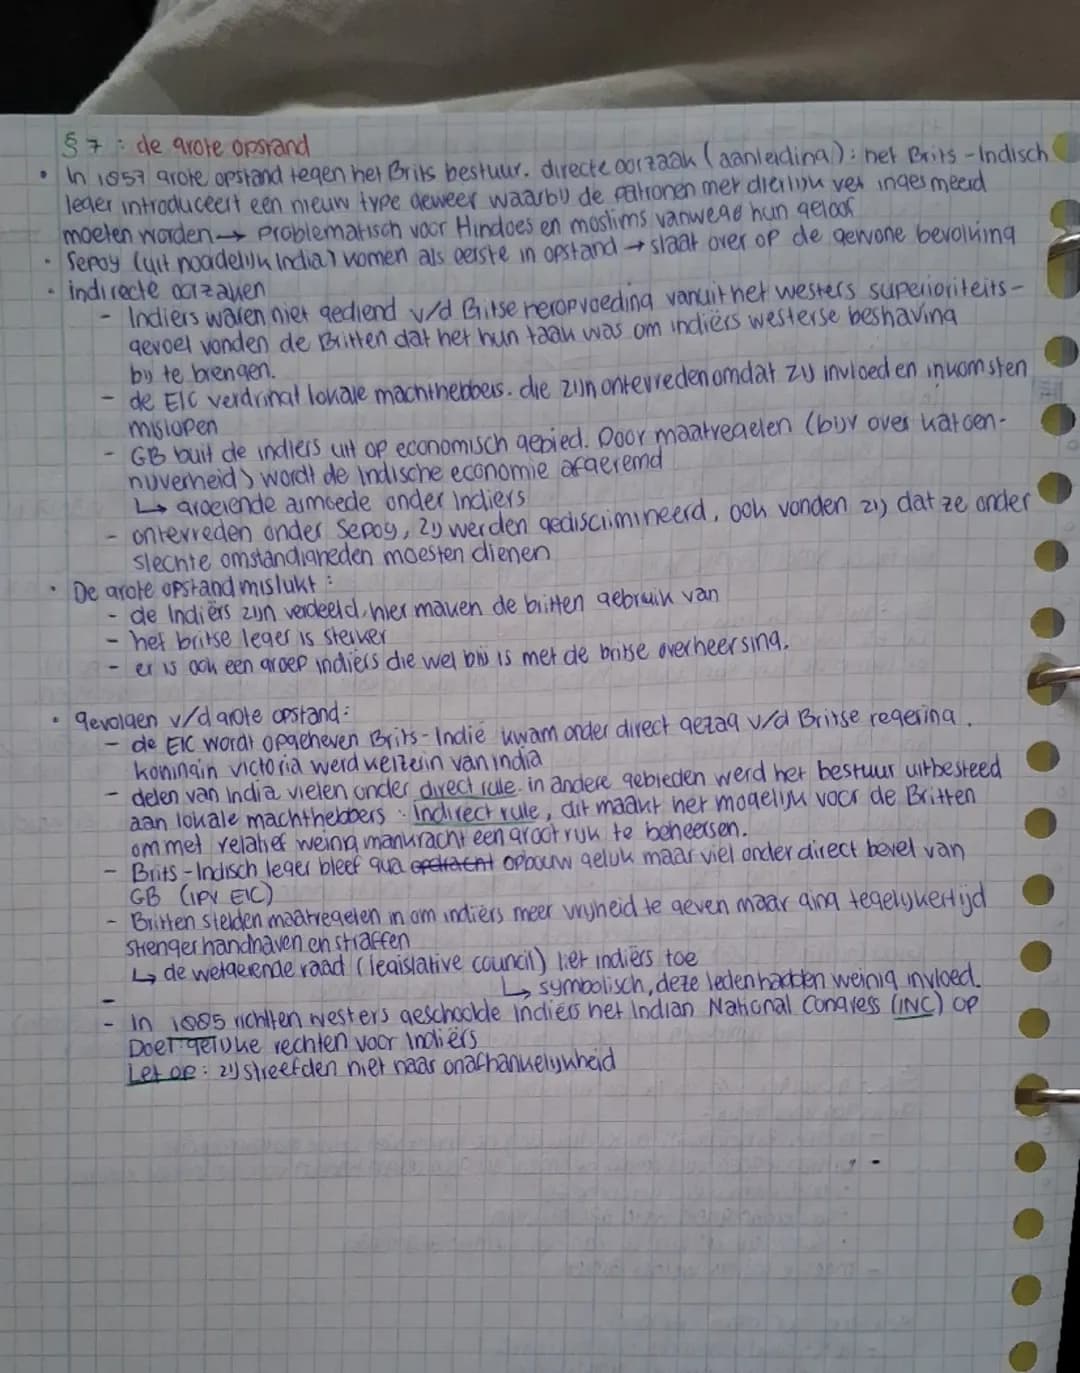 § 7 : de grote opstand
• In 1857 grote opstand tegen het Brits bestuur. directe oorzaak (aanleiding): het Brits-Indisch
leger introduceert een nieuw type geweer waarbij de patronen met dierlijk vet ingesmeerd
moeten worden → problematisch voor Hindoes en moslims vanwege hun geloof
• Sepoy (uit noordelijk India) komen als eerste in opstand → slaat over op de gewone bevolking
• indirecte oorzaken
- Indiërs waren niet gediend v/d Britse heropvoeding vanuit het westers superioriteits-
gevoel vonden de Britten dat het hun taak was om indiërs westerse beshaving
bij te brengen.
- de EIC verdringt lokale machthebbers. die zijn ontevreden omdat zij invloed en inkomsten
mislopen
- GB buit de indiërs uit op economisch gebied. Door maatregelen (bijv over katoen-
nijverheid) wordt de Indische economie afgeremd
↳ groeiende armoede onder Indiërs
- ontevreden onder Sepoy, zij werden gediscrimineerd, ook vonden zij dat ze onder
slechte omstandigheden moesten dienen
• De grote opstand mislukt :
- de Indiërs zijn verdeeld, hier maken de britten gebruik van
- het britse leger is sterker
- er is ook een groep indiërs die wel blij is met de britse overheersing.
• gevolgen v/d grote opstand:
- de EIC wordt opgeheven Brits-Indië kwam onder direct gezag v/d Britse regering.
koningin victoria werd keizerin van india
- delen van India vielen onder direct rule. in andere gebieden werd het bestuur uitbesteed
aan lokale machthebbers : indirect rule, dit maakt het mogelijk voor de Britten
om met relatief weinig mankracht een groot rijk te beheersen.
- Brits-Indisch leger bleef qua opdracht opbouw gelijk maar viel onder direct bevel van
GB (ipv EIC)
- Britten stelden maatregelen in om indiërs meer vrijheid te geven maar ging tegelijkertijd
strenger handhaven en straffen
↳ de wetgevende raad (legislative council) liet indiërs toe
↳ symbolisch, deze leden hadden weinig invloed.
-
- In 1885 richtten westers geschoolde indiërs het Indian National Congress (INC) op
Doel gelijke rechten voor Indiërs
Let op : zij streefden niet naar onafhankelijkheid